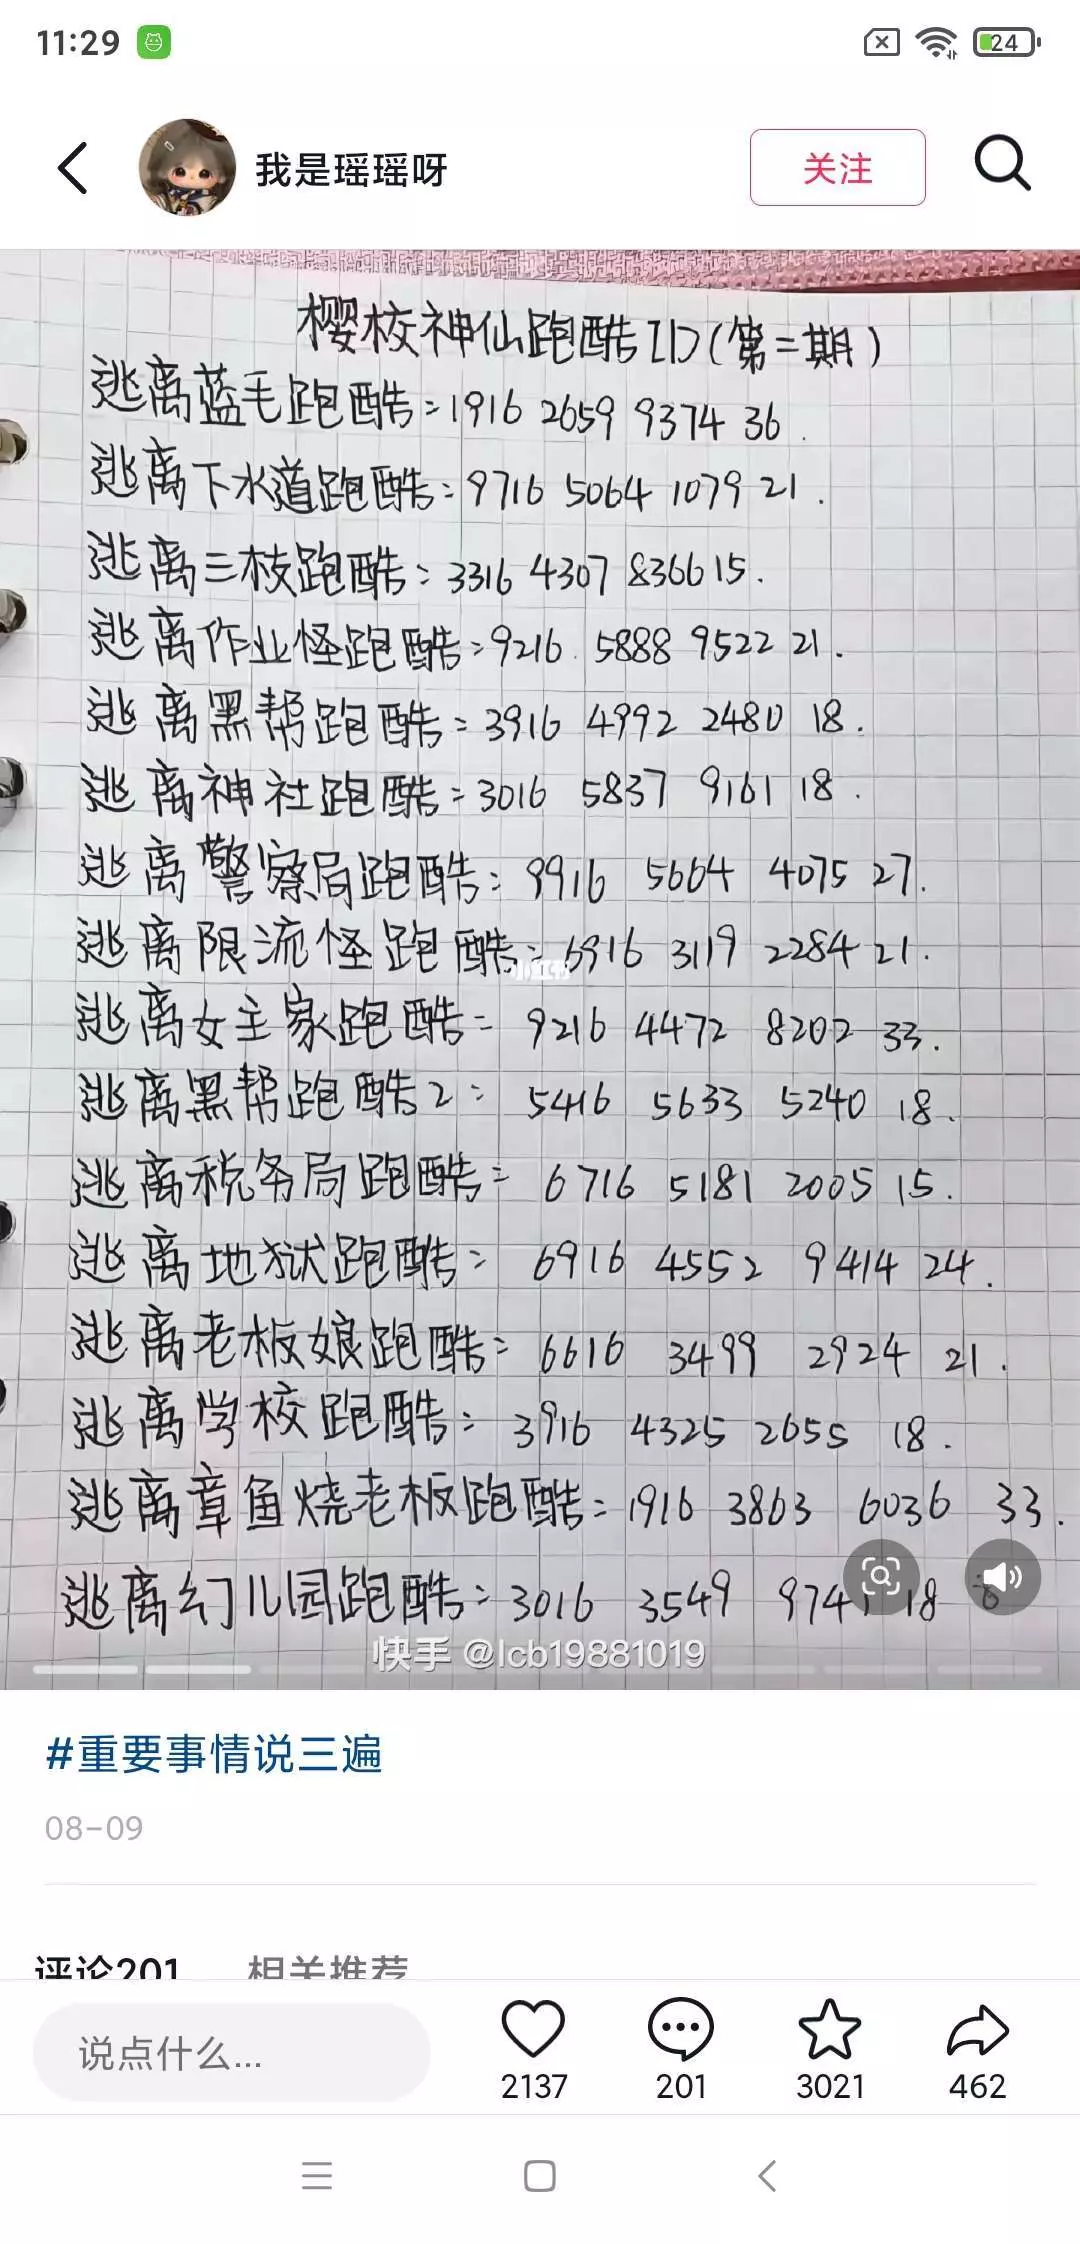 11:29
24
我是瑶瑶呀
关注
樱校神仙跑酷ID(第二期)
逃离蓝毛跑酷:1916 2659 9374 36.
逃离下水道跑酷:9716 5064 1079 21.
逃离三枝跑酷:3316 4307 8366 15.
逃离作业怪跑酷:9216 5888 9522 21.
逃离黑帮跑酷:3916 4992 2480 18.
逃离神社跑酷:3016 5837 9161 18.
逃离警察局跑酷:9916 5664 4075 27.
逃离限流怪跑酷:6916 3119 2284 21.
小红书
逃离女主家跑酷:9216 4472 8202 33.
逃离黑帮跑酷2:5416 5633 5240 18.
逃离税务局跑酷:6716 5181 2005 15.
逃离地狱跑酷:6916 4552 9414 24.
逃离老板娘跑酷:6616 3499 2924 21.
逃离学校跑酷:3916 4325 2655 18.
逃离章鱼烧老板跑酷:1916 3863 6036 33.
逃离幻儿园跑酷:3016 3549 18
快手 @lcb19881019
#重要事情说三遍
08-09
评论201 相关推荐
说点什么...
2137 201 3021 462